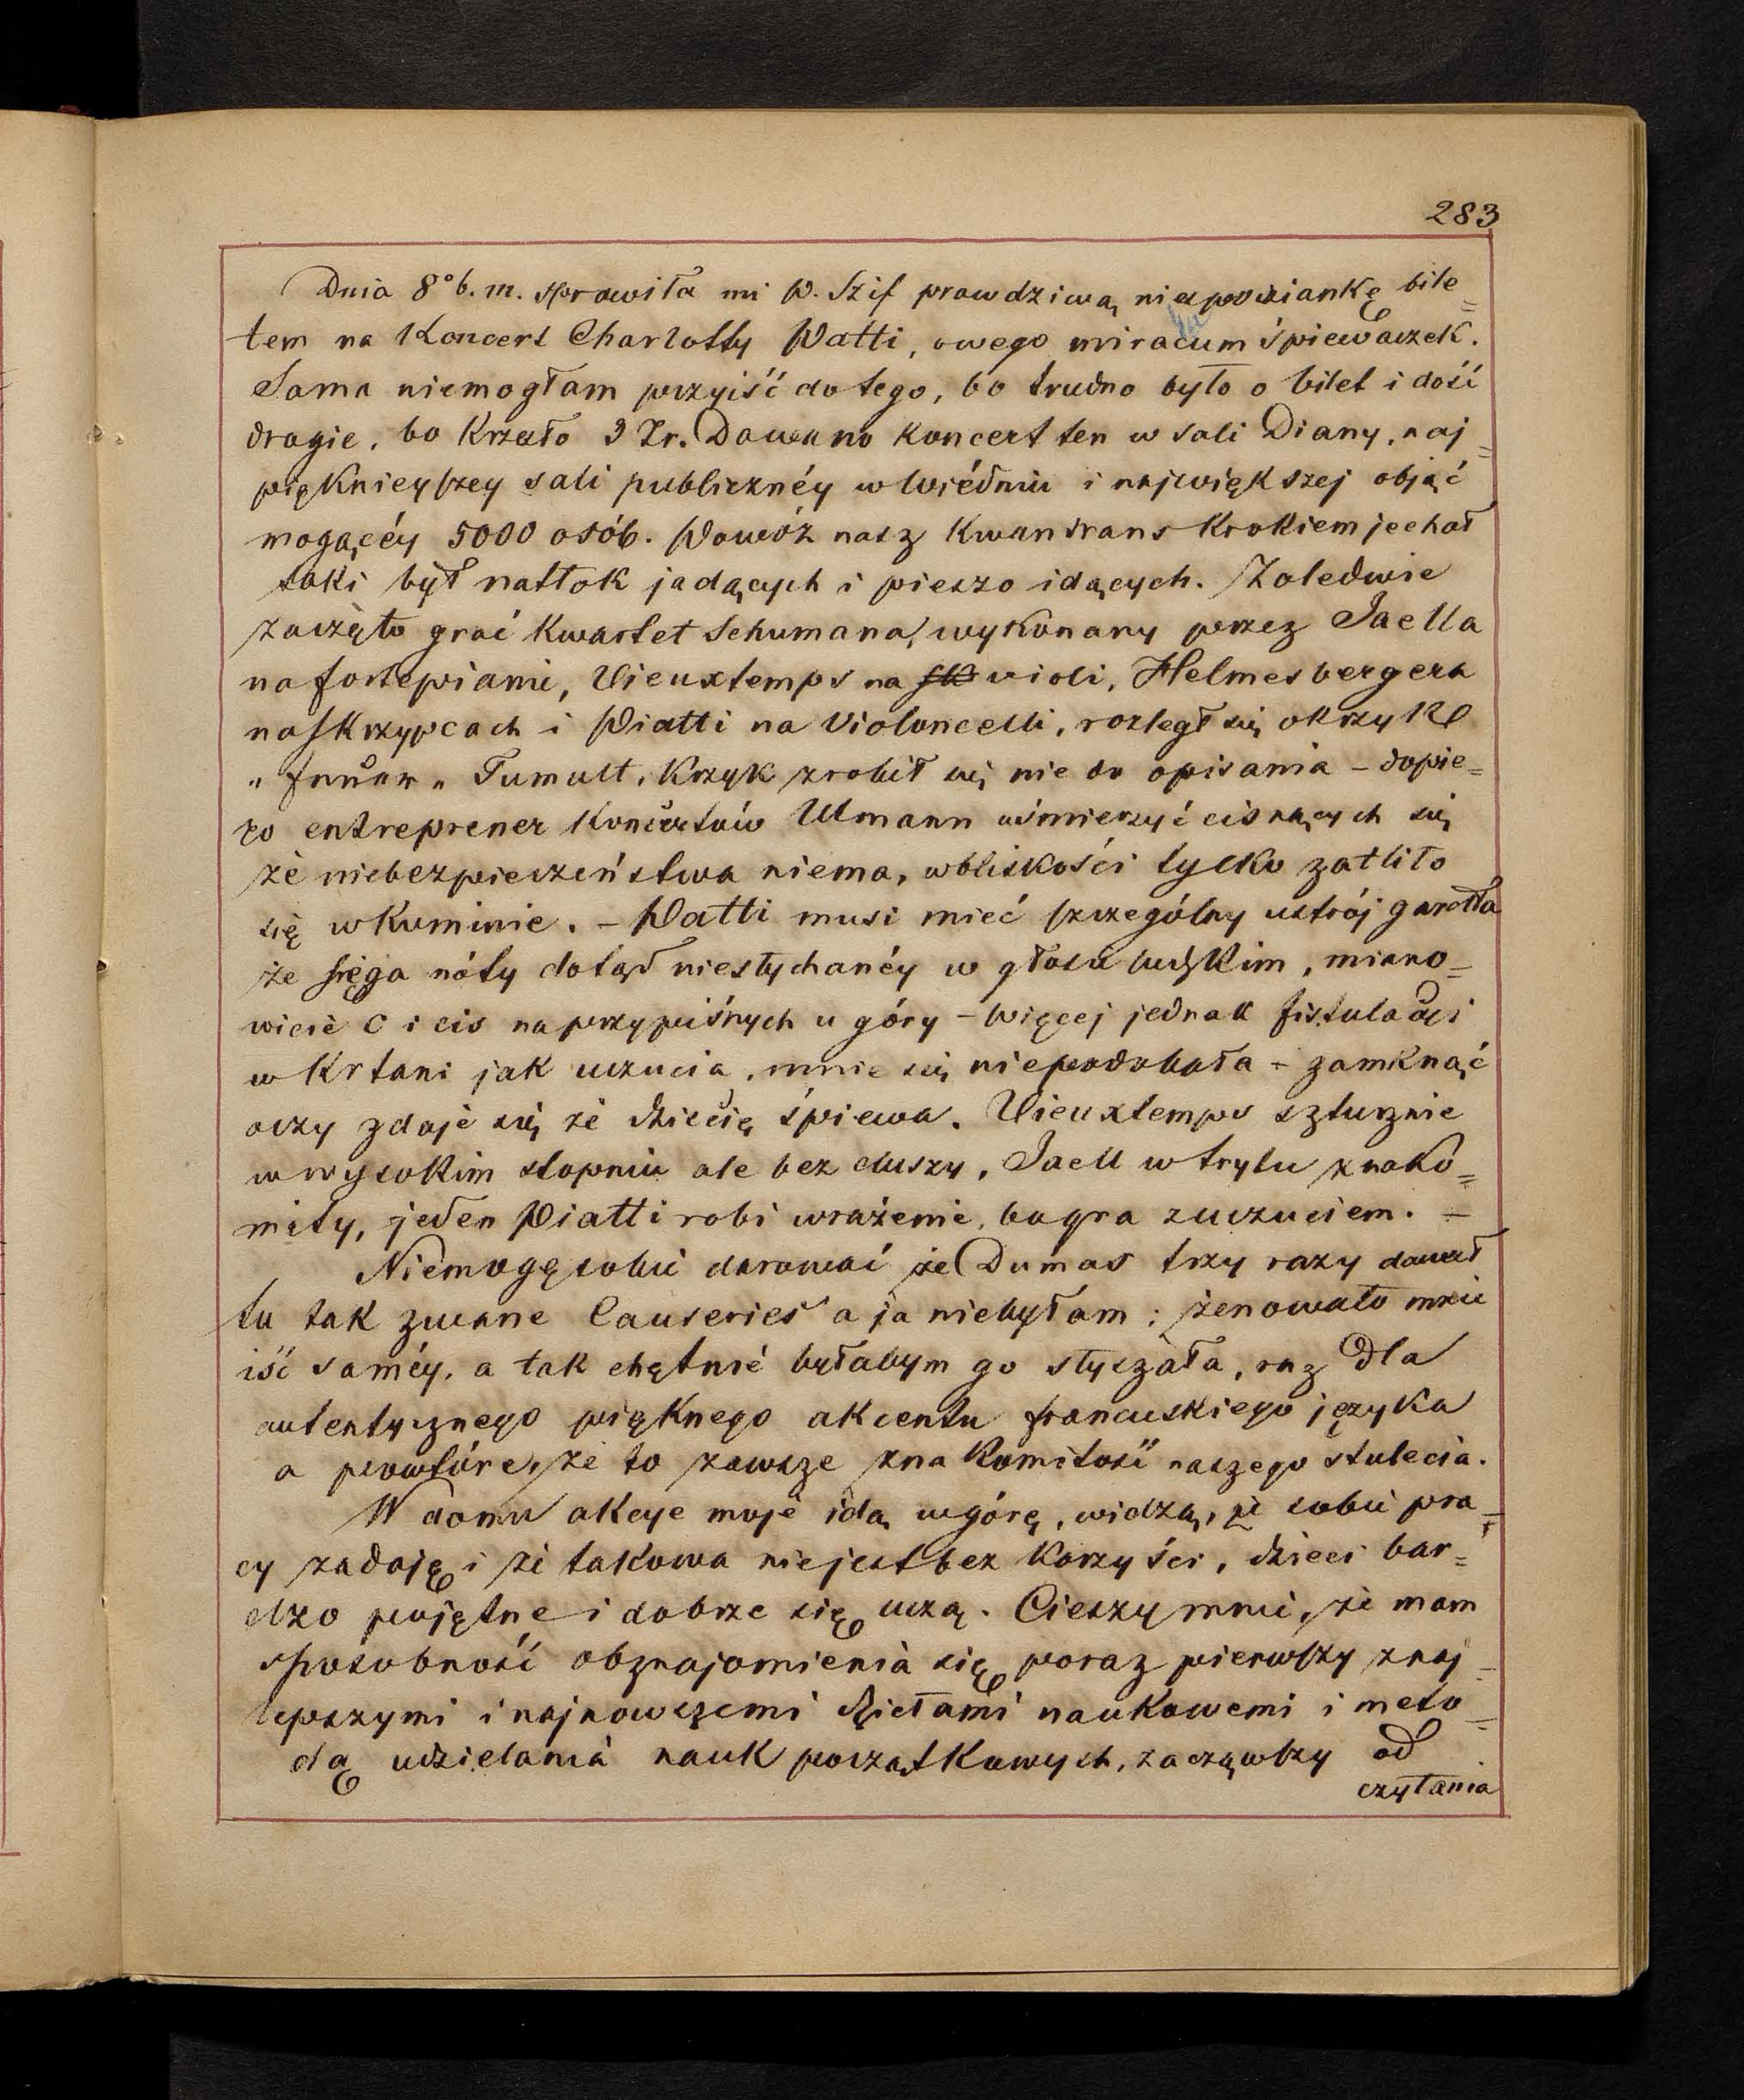 283
Dnia 8° b. m. sprawiła mi P. Szif prawdziwą niespodziankę bile=
tem na Koncert Charlotty Patti, owego miracum śpiewaczek.
Sama niemogłam przyiść do tego, bo trudno było o bilet i dość
drogie, bo Krzesło 3 Zr. Dawano koncert ten w sali Diany, naj=
piękniejszey sali publicznéy w Wiédniu i największej objąć
mogącéy 5000 osób. Powóz nasz Kwandrans Krokiem jechał
taki był natłok jadących i pieszo idących. Zaledwie
zaczęto grać Kwartet Schumana, wykonany przez Jaella
na fortepianie, Vieuxtemps na violi, Helmesbergera
na skrzypcach i Piatti na Violoncelli, rozległ się okrzyk
„ Feuer „ Tumult, Krzyk zrobił się nie do opisania – dopie=
ro entreprener Koncertów Ulmann uśmierzyć cisnących się
że niebezpieczeństwa niema, w bliskości tylko zatliło
się w Kominie. – Patti musi mieć szczególny ustrój gardła
że sięga nóty dotąd niesłychanéy w głosie ludzkim, miano=
wicie C i cis na przypiśnych u góry – więcej jednak fistuladzi
w Krtani jak uczucia, mnie się niepodobała – zamknąć
oczy zdaje się że dziecię śpiewa. Vieuxtemps sztucznie
w wysokim stopniu ale bez duszy, Jaell w trylu znako=
mity, jeden Piatti robi wrażenie, bo gra z uczuciem. –
Niemogę sobie darować że Dumas trzy razy dawał
tu tak zwane Causeries a ja niebyłam; żenowało mnie
iść saméy, a tak chętnie byłabym go słyszała, raz dla
autentycznego pięknego akcentu francuskiego języka
a powtóre, że to zawsze znakomitość naszego stulecia.
W domu akcye moje idą w górę, widzą, że sobie pra=
cy zadaję i że takowa niejest bez korzyści, dzieci bar=
dzo pojętne i dobrze się uczą. Cieszy mnie, że mam
sposobność obznajomienia się poraz pierwszy z naj=
lepszymi i najnowszemi dziełami naukowemi i meto=
dą udzielania nauk początkowych, zacząwszy od
czytania